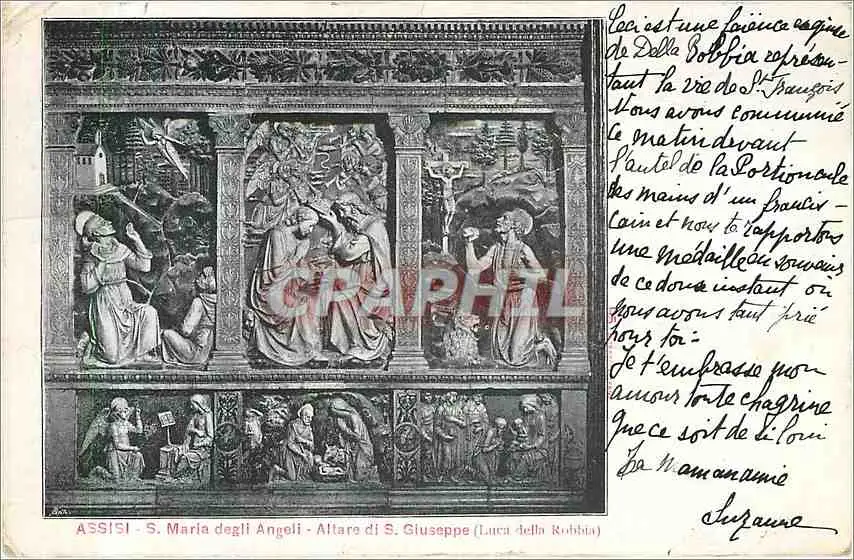 Ceci est une faïence
de Della Robbia représen-
tant la vie de St. François
Nous avons communié
ce matin devant
l'autel de la Portioncule
des mains d'un francis-
cain et nous te rapportons
une médaille en souvenir
de ce doux instant où
nous avons tant prié
pour toi =
Je t'embrasse mon
amour toute chagrine
que ce soit de si loin
Ta maman amie
Suzanne
CPARAPHIL
ASSISI - S. Maria degli Angeli - Altare di S. Giuseppe (Luca della Robbia)